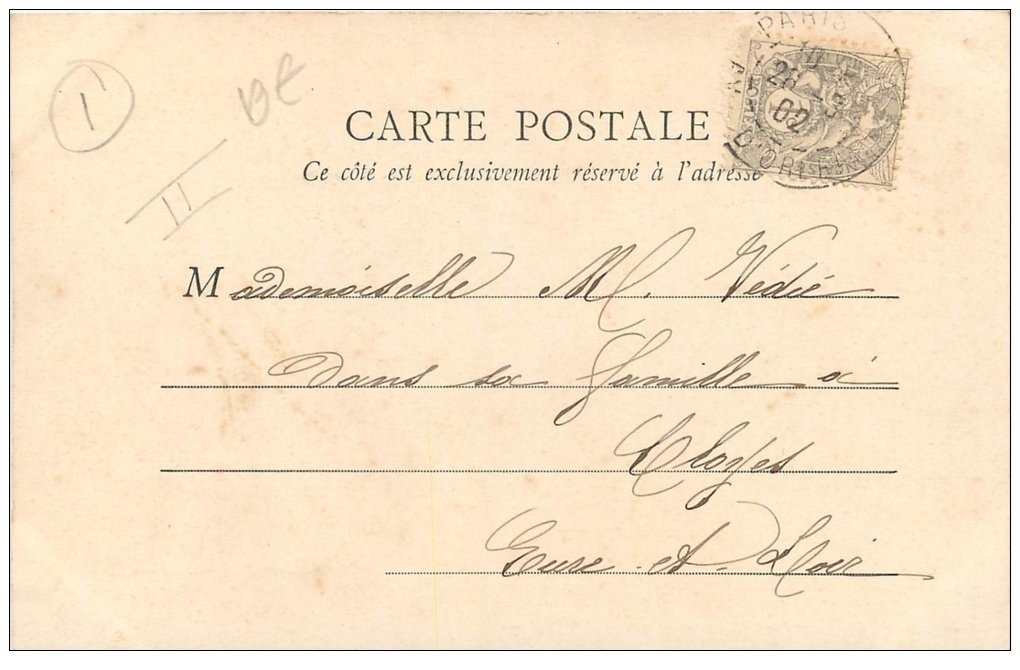 1
II
CARTE POSTALE
Ce côté est exclusivement réservé à l'adresse
PARIS
26
02
Mademoiselle M. Védié
Dans sa famille à
Cloyes
Eure et Loir